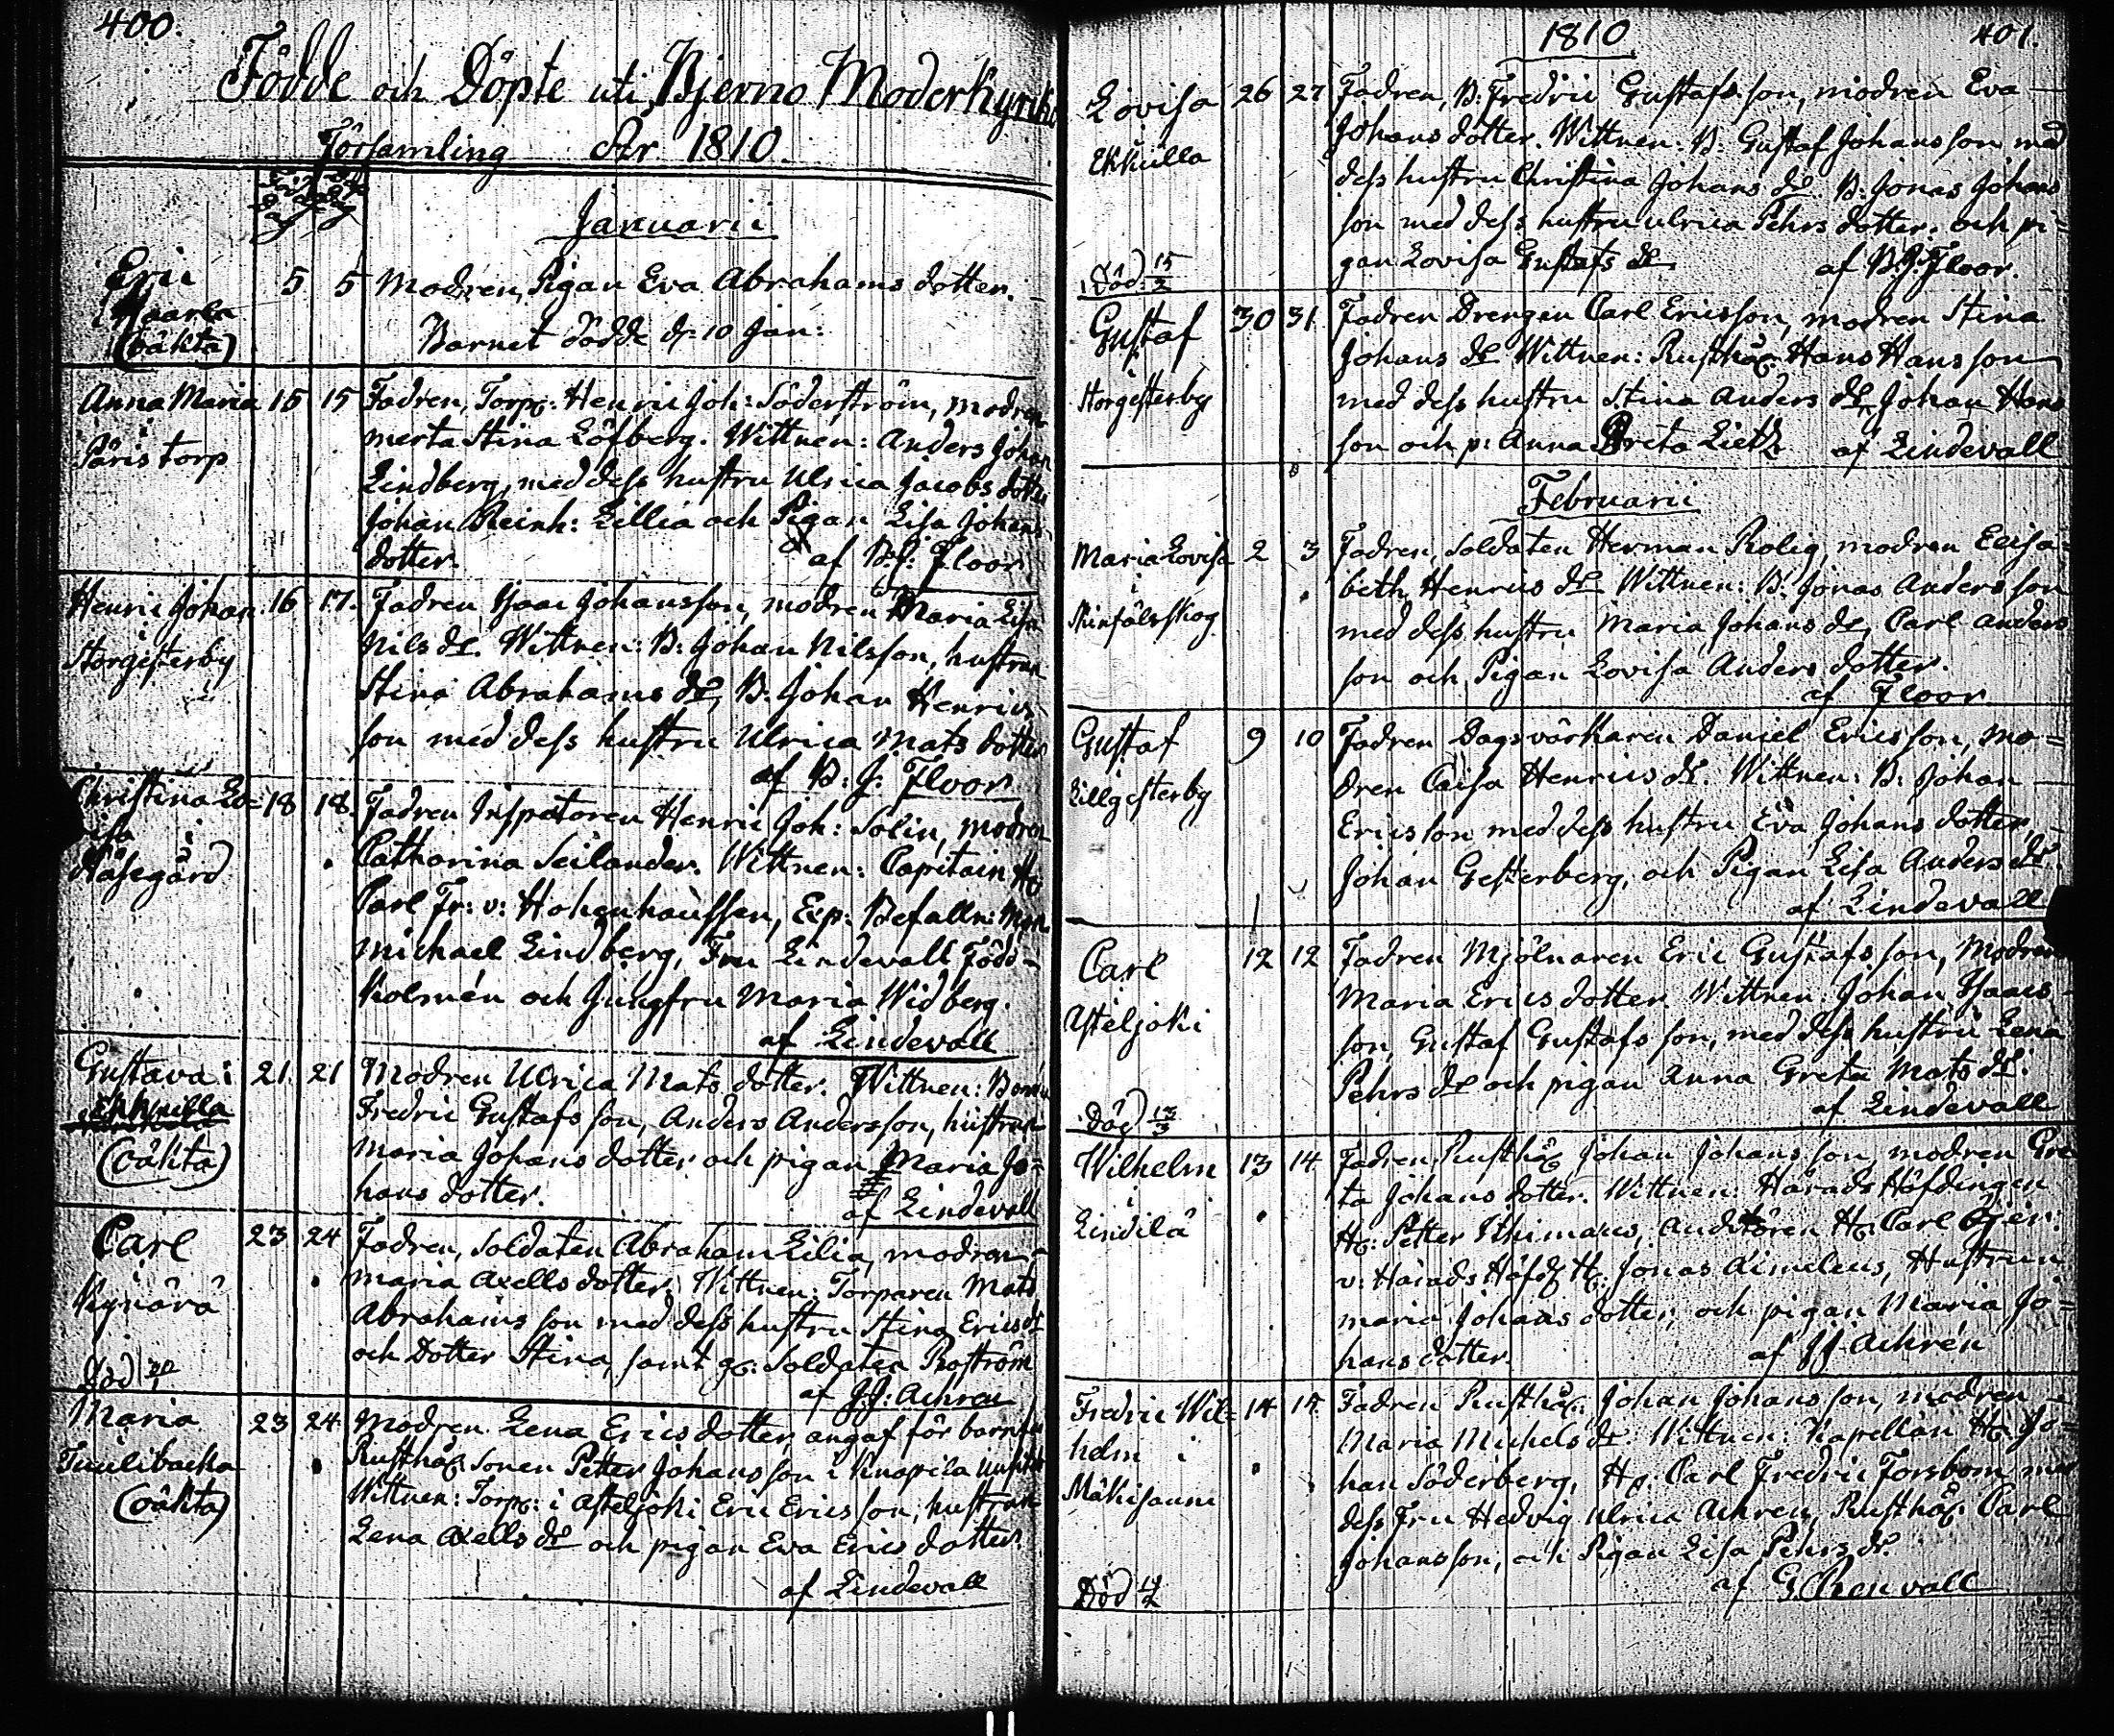 400.
Födde och Döpte uti Bjerno Moderkyrko
Församling År 1810.
Januarii
Eric
(oäkta)
5 5 Modren, Pigan Eva Abrahams dotter.
Barnet dödde d. 10 Jan:
Anna Maria
i
Päris torp
15 15 Fadren, Torp: Henric Joh: Söderström, modren
Merta Stina Löfberg. Wittnen: Anders Johan
Lindberg, med dess hustru Ulrica Jacobs dotter
Johan Reinh: Lillia och Pigan Lisa Johans
dotter. af B: J: Floor
Henric Johan
i
Storgesterby
16 17. Fadren Isaac Johansson, modren Maria Lisa
Nils dr. Wittnen: B: Johan Nilsson, hustrun
Stina Abrahams dr, B. Johan Henrics
son med dess hustru Ulrica Mats dotter
af B: J: Floor
Christina Lo=
visa i
Näsegård
18 18. Fadren Inspectoren Henric Joh: Solin, modren
Catharina Seilander. Wittnen: Capitain Hr
Carl Fr: v: Hohenhaussen, Exp: Befalln: Man
Michael Lindberg, Fru Lindevall Född
Kolmén och Jungfru Maria Widberg.
af Lindevall
Gustava i
Ekkulla
(oäkta)
21 21 Modren Ulrica Mats dotter. Wittnen: Bonden
Fredric Gustafs son, Anders Andersson, hustrun
Maria Johans dotter och pigan Maria Jo=
hans dotter. af Lindevall
Carl
Kynärä
Död
23 24 Fadren, Soldaten Abraham Lilia, modren
Maria Axells dotter. Wittnen: Torparen Mats
Abrahams son med dess hustru Stina Erics dr
och Dotter Stina, samt gr: Soldaten Roström
af J.J: Achren
Maria
Tuulibacka
(oäkta)
23 24 Modren Lena Erics dotter, angaf för barnfar
Rusthåll: Sonen Petter Johans son i Knapila
Wittnen: Torp: i Asteljoki Eric Erics son, hustrun
Lena Axells dr och pigan Eva Erics dotter
af Lindevall
1810 401.
Lovisa
i
Ekkulla
Död 15/2
26 27 Fadren, B: Fredric Gustafs son, modren Eva
Johans dotter. Wittnen: B: Gustaf Johans son med
dess hustru Christina Johans dr B: Jonas Johans
son med dess hustru Ulrica Pehrs dotter, och pi=
gan Lovisa Gustafs dr af B: J: Floor.
Gustaf
i
Storgesterby
30 31 Fadren Drengen Carl Ericsson, modren Stina
Johans dr Wittnen: Rusthåll: Hans Hansson
med dess hustru Stina Anders dr, Johan Hans
son och p: Anna Greta Lietz af Lindevall
Februarii
Maria Lovisa
i
2 3 Fadren, Soldaten Herman Rolig, modren Elisa=
beth Henrics dr Wittnen: B: Jonas Anders son
med dess hustru Maria Johans dr, Carl Anders
son och Pigan Lovisa Anders dotter.
af Floor
Gustaf
Lillgesterby
9 10 Fadren Dagsvärkaren Daniel Erics son, mo=
dren Caisa Henrics dr. Wittnen: B: Johan
Ericsson med dess hustru Eva Johans dotter,
Johan Gesterberg, och Pigan Lisa Anders dr.
af Lindevall
Carl
Asteljoki
Död 13/3
12 12 Fadren Mjölnaren Eric Gustafs son, Modren
Maria Erics dotter Wittnen: Johan Isaacs
son, Gustaf Gustafs son, med dess hustru Lena
Pehrs dr och pigan Anna Greta Mats dr.
af Lindevall
Wilhelm
i
Lindilä
13 14 Fadren, Rusthåll Johan Johans son, modren Gre
ta Johans dotter. Wittnen: Härads Höfdingen
Hr: Petter Ithimæus, Auditören Hr: Carl
v: Härads Höfd Hr: Jonas Aimelæus, Hustrun
Maria Johans dotter, och pigan Maria Jo=
hans dotter. af JJ Achrén
Fredric Wil=
helm i
Mäkisauru
Död
14 15 Fadren Rusthåll: Johan Johans son, modren
Maria Michels dr. Wittnen: Kapellan Hr Jo=
han Söderberg, Hr: Carl Fredric Forsbom med
dess Fru Hedvig Ulrica Achren, Rusthåll: Carl
Johansson, och Pigan Lisa Pehrs dr.
af G. Renvall